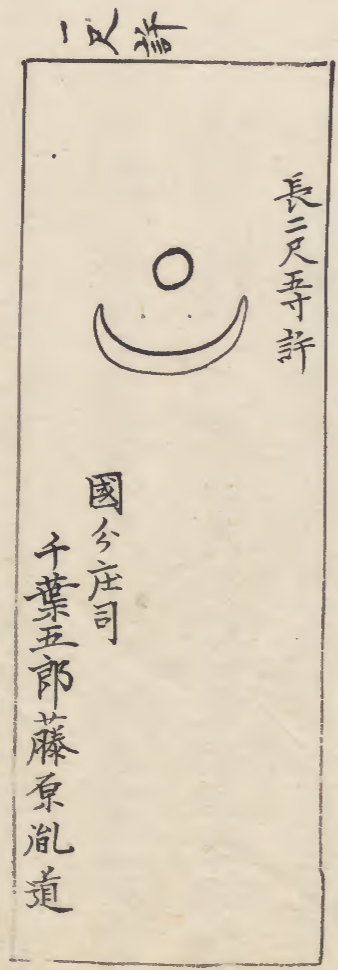 一尺許
長二尺五寸許
國分庄司
千葉五郎藤原胤道